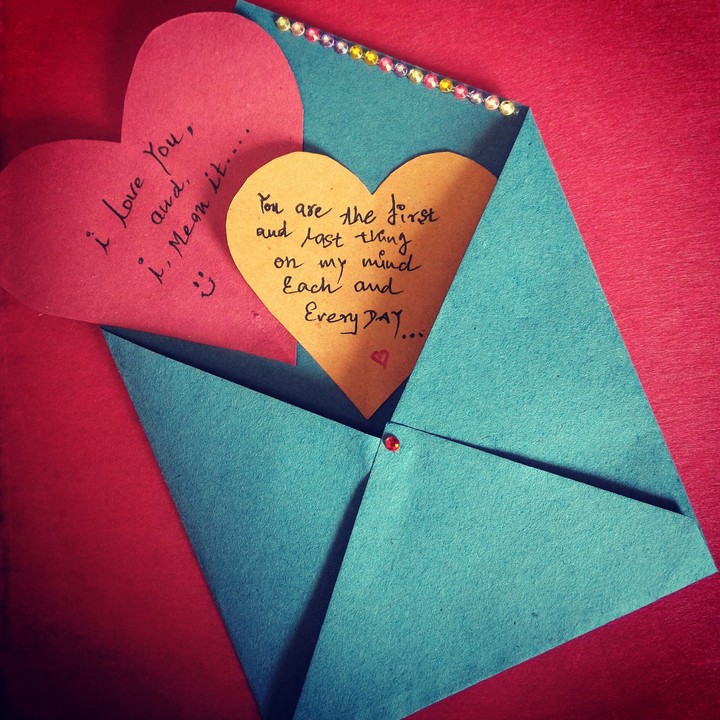 i love You,
and,
i, Mean it....
You are the first
and last thing
on my mind
Each and
Every DAY...